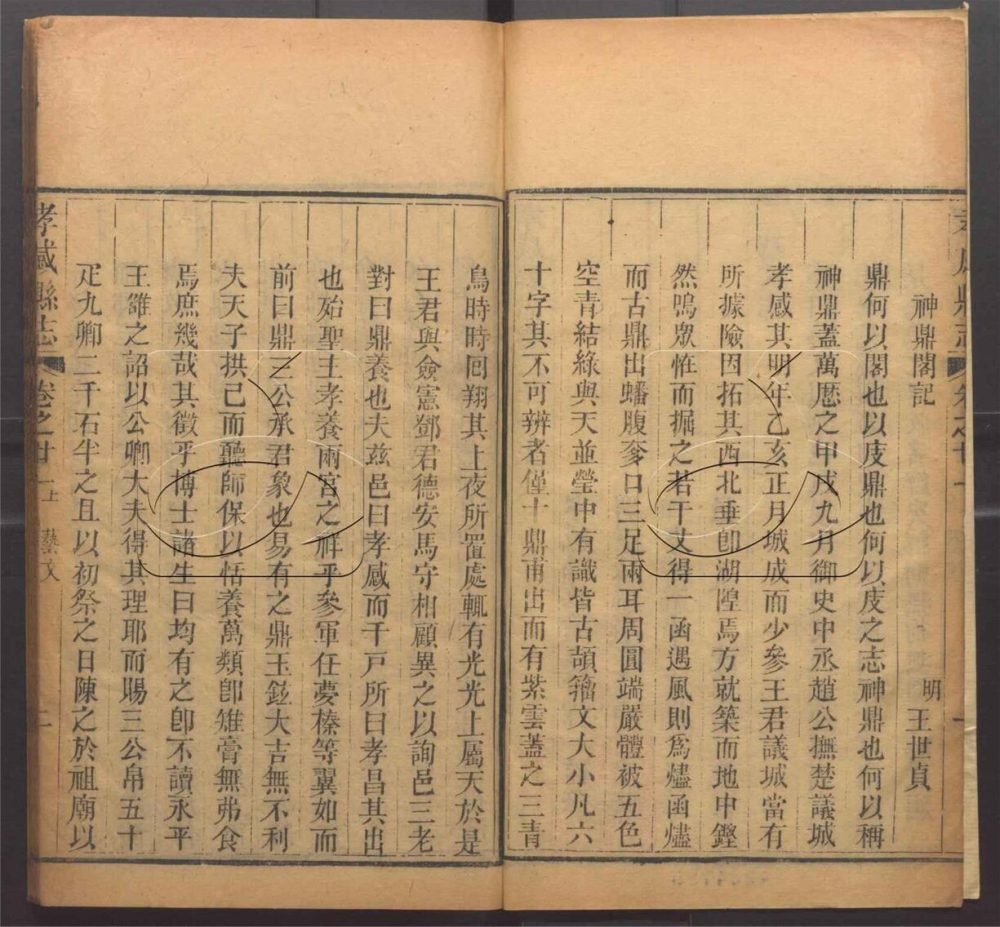 神鼎閣記
明 王世貞
鼎何以閣也以庋鼎也何以庋之志神鼎也何以稱
神鼎蓋萬曆之甲戌九月御史中丞趙公撫楚議城
孝感其明年乙亥正月城成而少參王君議城當有
所據險因拓其西北垂卽湖隍焉方就築而地中鏗
然鳴眾恠而掘之若干丈得一函遇風則爲燼函燼
而古鼎出蟠腹奓口三足兩耳周圓端嚴體被五色
空青結綠與天並瑩中有識皆古頡籀文大小凡六
十字其不可辨者僅十鼎甫出而有紫雲蓋之三青
鳥時時回翔其上夜所置處輒有光光上屬天於是
王君與僉憲鄧君德安馬守相顧異之以詢邑三老
對曰鼎養也夫茲邑曰孝感而千戸所曰孝昌其出
也殆聖王孝養兩宮之祥乎參軍任夢榛等翼如而
前曰鼎三公承君象也易有之鼎玉鉉大吉無不利
夫天子拱己而聽師保以恬養萬類卽雉膏無弗食
焉庶幾哉其徵乎博士諸生曰均有之卽不讀永平
王雒之詔以公卿大夫得其理耶而賜三公帛五十
疋九卿二千石半之且以初祭之日陳之於祖廟以
孝感縣志 卷之廿一上 藝文